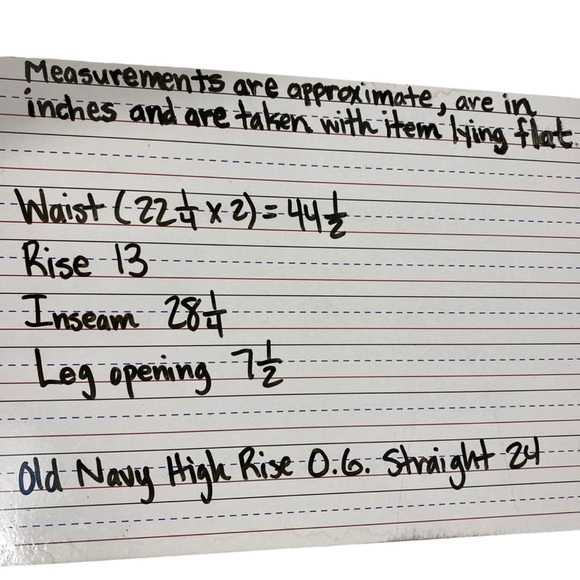 Measurements are approximate, are in
inches and are taken with item lying flat.
Waist (22 1/4 x 2) = 44 1/2
Rise 13
Inseam 28 1/4
Leg opening 7 1/2
Old Navy High Rise O.G. Straight 24